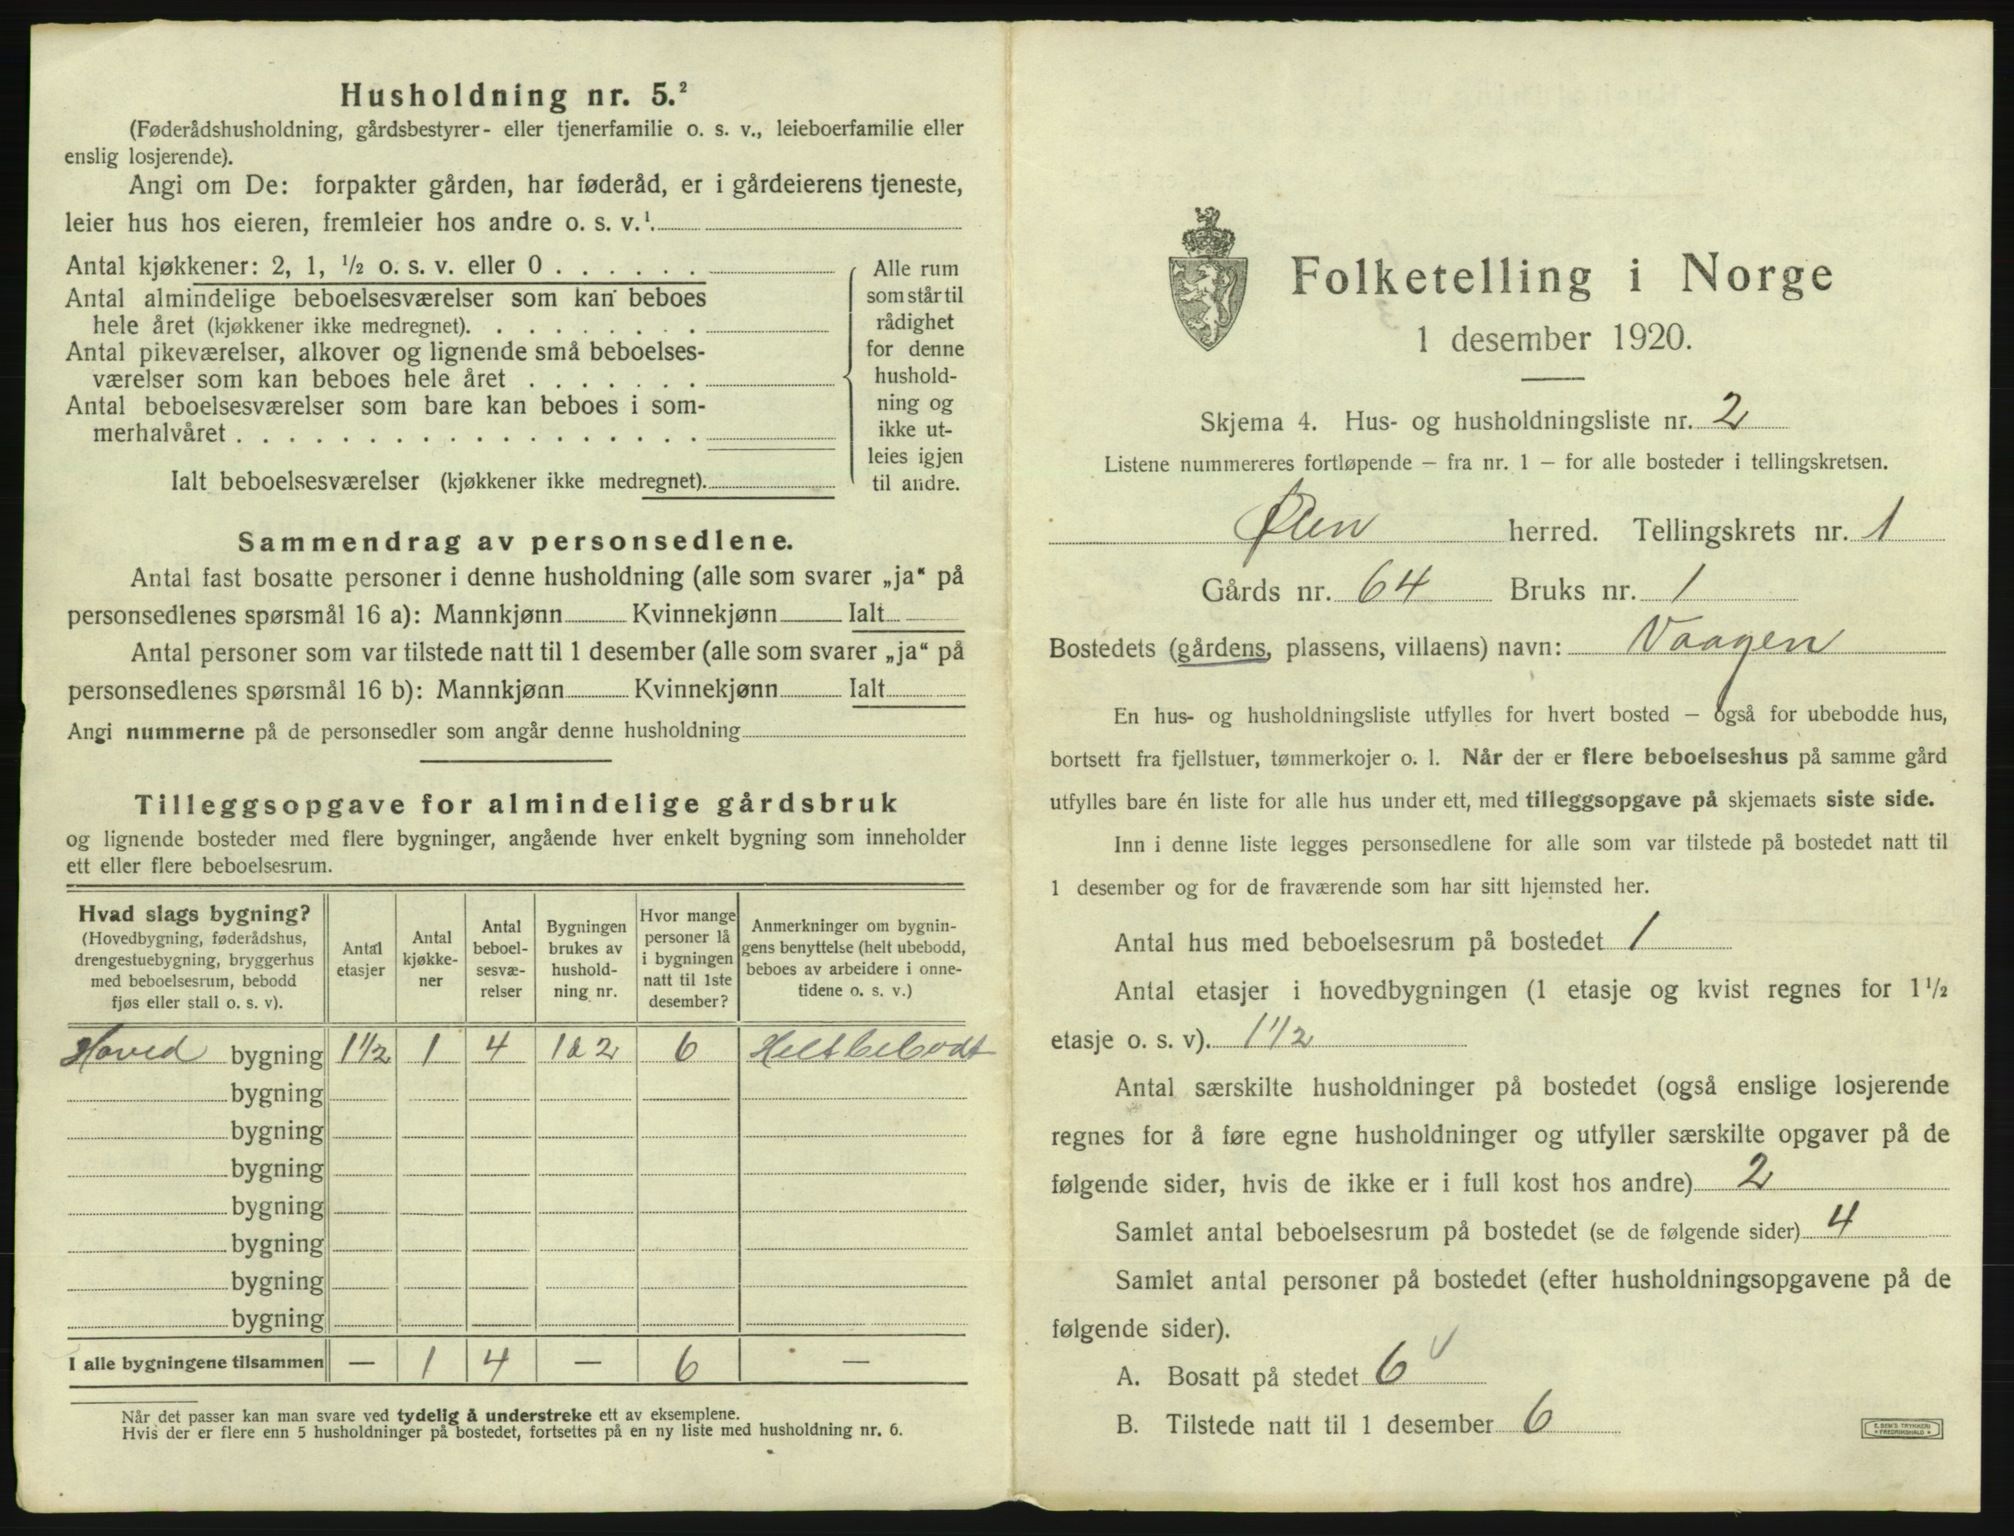 Husholdning nr. 5.²
(Føderådshusholdning, gårdsbestyrer- eller tjenerfamilie o. s. v., leieboerfamilie eller
enslig losjerende).
Angi om De: forpakter gården, har føderåd, er i gårdeierens tjeneste,
leier hus hos eieren, fremleier hos andre o. s. v.¹.
Antal kjøkkener: 2, 1, ½ o. s. v. eller 0 . . . . . .
Antal almindelige beboelsesværelser som kan beboes
hele året (kjøkkener ikke medregnet). . . . . . . . .
Antal pikeværelser, alkover og lignende små beboelses-
værelser som kan beboes hele året . . . . . . .
Antal beboelsesværelser som bare kan beboes i som-
merhalvåret . . . . . . . . . . . . . . . . . .
Ialt beboelsesværelser (kjøkkener ikke medregnet).
Alle rum
som står til
rådighet
for denne
hushold-
ning og
ikke ut-
leies igjen
til andre.
Sammendrag av personsedlene.
Antal fast bosatte personer i denne husholdning (alle som svarer „ja“ på
personsedlenes spørsmål 16 a): Mannkjønn Kvinnekjønn Ialt
Antal personer som var tilstede natt til 1 desember (alle som svarer „ja“ på
personsedlenes spørsmål 16 b): Mannkjønn Kvinnekjønn Ialt
Angi nummerne på de personsedler som angår denne husholdning
Tilleggsopgave for almindelige gårdsbruk
og lignende bosteder med flere bygninger, angående hver enkelt bygning som inneholder
ett eller flere beboelsesrum.
Hvad slags bygning?
(Hovedbygning, føderådshus,
drengestuebygning, bryggerhus
med beboelsesrum, bebodd
fjøs eller stall o. s. v).
Antal
etasjer
Antal
kjøkke-
ner
Antal
beboel-
sesvæ-
relser
Bygningen
brukes av
hushold-
ning nr.
Hvor mange
personer lå
i bygningen
natt til 1ste
desember?
Anmerkninger om bygnin-
gens benyttelse (helt ubebodd,
beboes av arbeidere i onne-
tidene o. s. v.)
Hoved bygning 1½ 1 4 1 à 2 6 Helt bebodt
bygning
bygning
bygning
bygning
bygning
bygning
bygning
I alle bygningene tilsammen — 1 4 — 6 —
Når det passer kan man svare ved tydelig å understreke ett av eksemplene.
Hvis der er flere enn 5 husholdninger på bostedet, fortsettes på en ny liste med husholdning nr. 6.
Folketelling i Norge
1 desember 1920.
Skjema 4. Hus- og husholdningsliste nr. 2
Listene nummereres fortløpende – fra nr. 1 – for alle bosteder i tellingskretsen.
Ølen herred. Tellingskrets nr. 1
Gårds nr. 64 Bruks nr. 1
Bostedets (gårdens, plassens, villaens) navn: Vaagen
En hus- og husholdningsliste utfylles for hvert bosted – også for ubebodde hus,
bortsett fra fjellstuer, tømmerkojer o. l. Når der er flere beboelseshus på samme gård
utfylles bare én liste for alle hus under ett, med tilleggsopgave på skjemaets siste side.
Inn i denne liste legges personsedlene for alle som var tilstede på bostedet natt til
1 desember og for de fraværende som har sitt hjemsted her.
Antal hus med beboelsesrum på bostedet 1
Antal etasjer i hovedbygningen (1 etasje og kvist regnes for 1½
etasje o. s. v). 1½
Antal særskilte husholdninger på bostedet (også enslige losjerende
regnes for å føre egne husholdninger og utfyller særskilte opgaver på de
følgende sider, hvis de ikke er i full kost hos andre) 2
Samlet antal beboelsesrum på bostedet (se de følgende sider) 4
Samlet antal personer på bostedet (efter husholdningsopgavene på de
følgende sider).
A. Bosatt på stedet 6
B. Tilstede natt til 1 desember 6
E. SEM'S TRYKKERI
FREDRIKSHALD